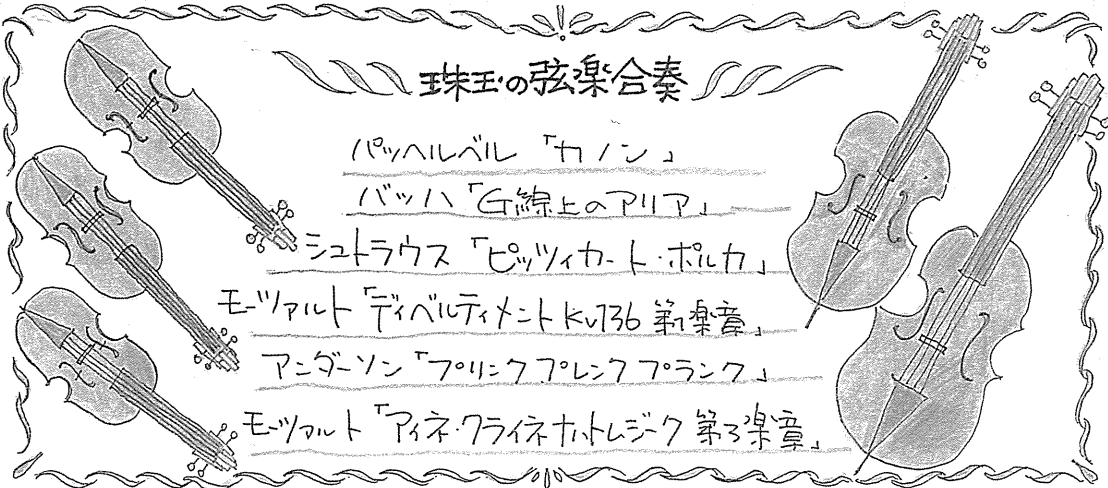 珠玉の弦楽合奏
パッヘルベル「カノン」
バッハ「G線上のアリア」
シュトラウス「ピッツィカート・ポルカ」
モーツァルト「ディベルティメントKv136 第1楽章」
アンダーソン「プリンク プレンク プランク」
モーツァルト「アイネ・クライネナハトムジーク 第3楽章」